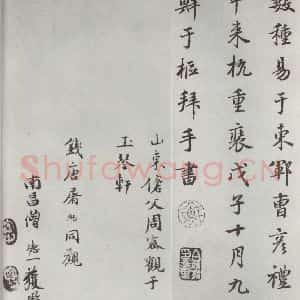 數種易于東鄆曹彦禮
午来杭重裝戊子十月九
鮮于樞拜手書
山東傖父周密觀于
玉琴軒
錢唐屠約同觀
南昌僧德一獲觀
Shufawang.CN